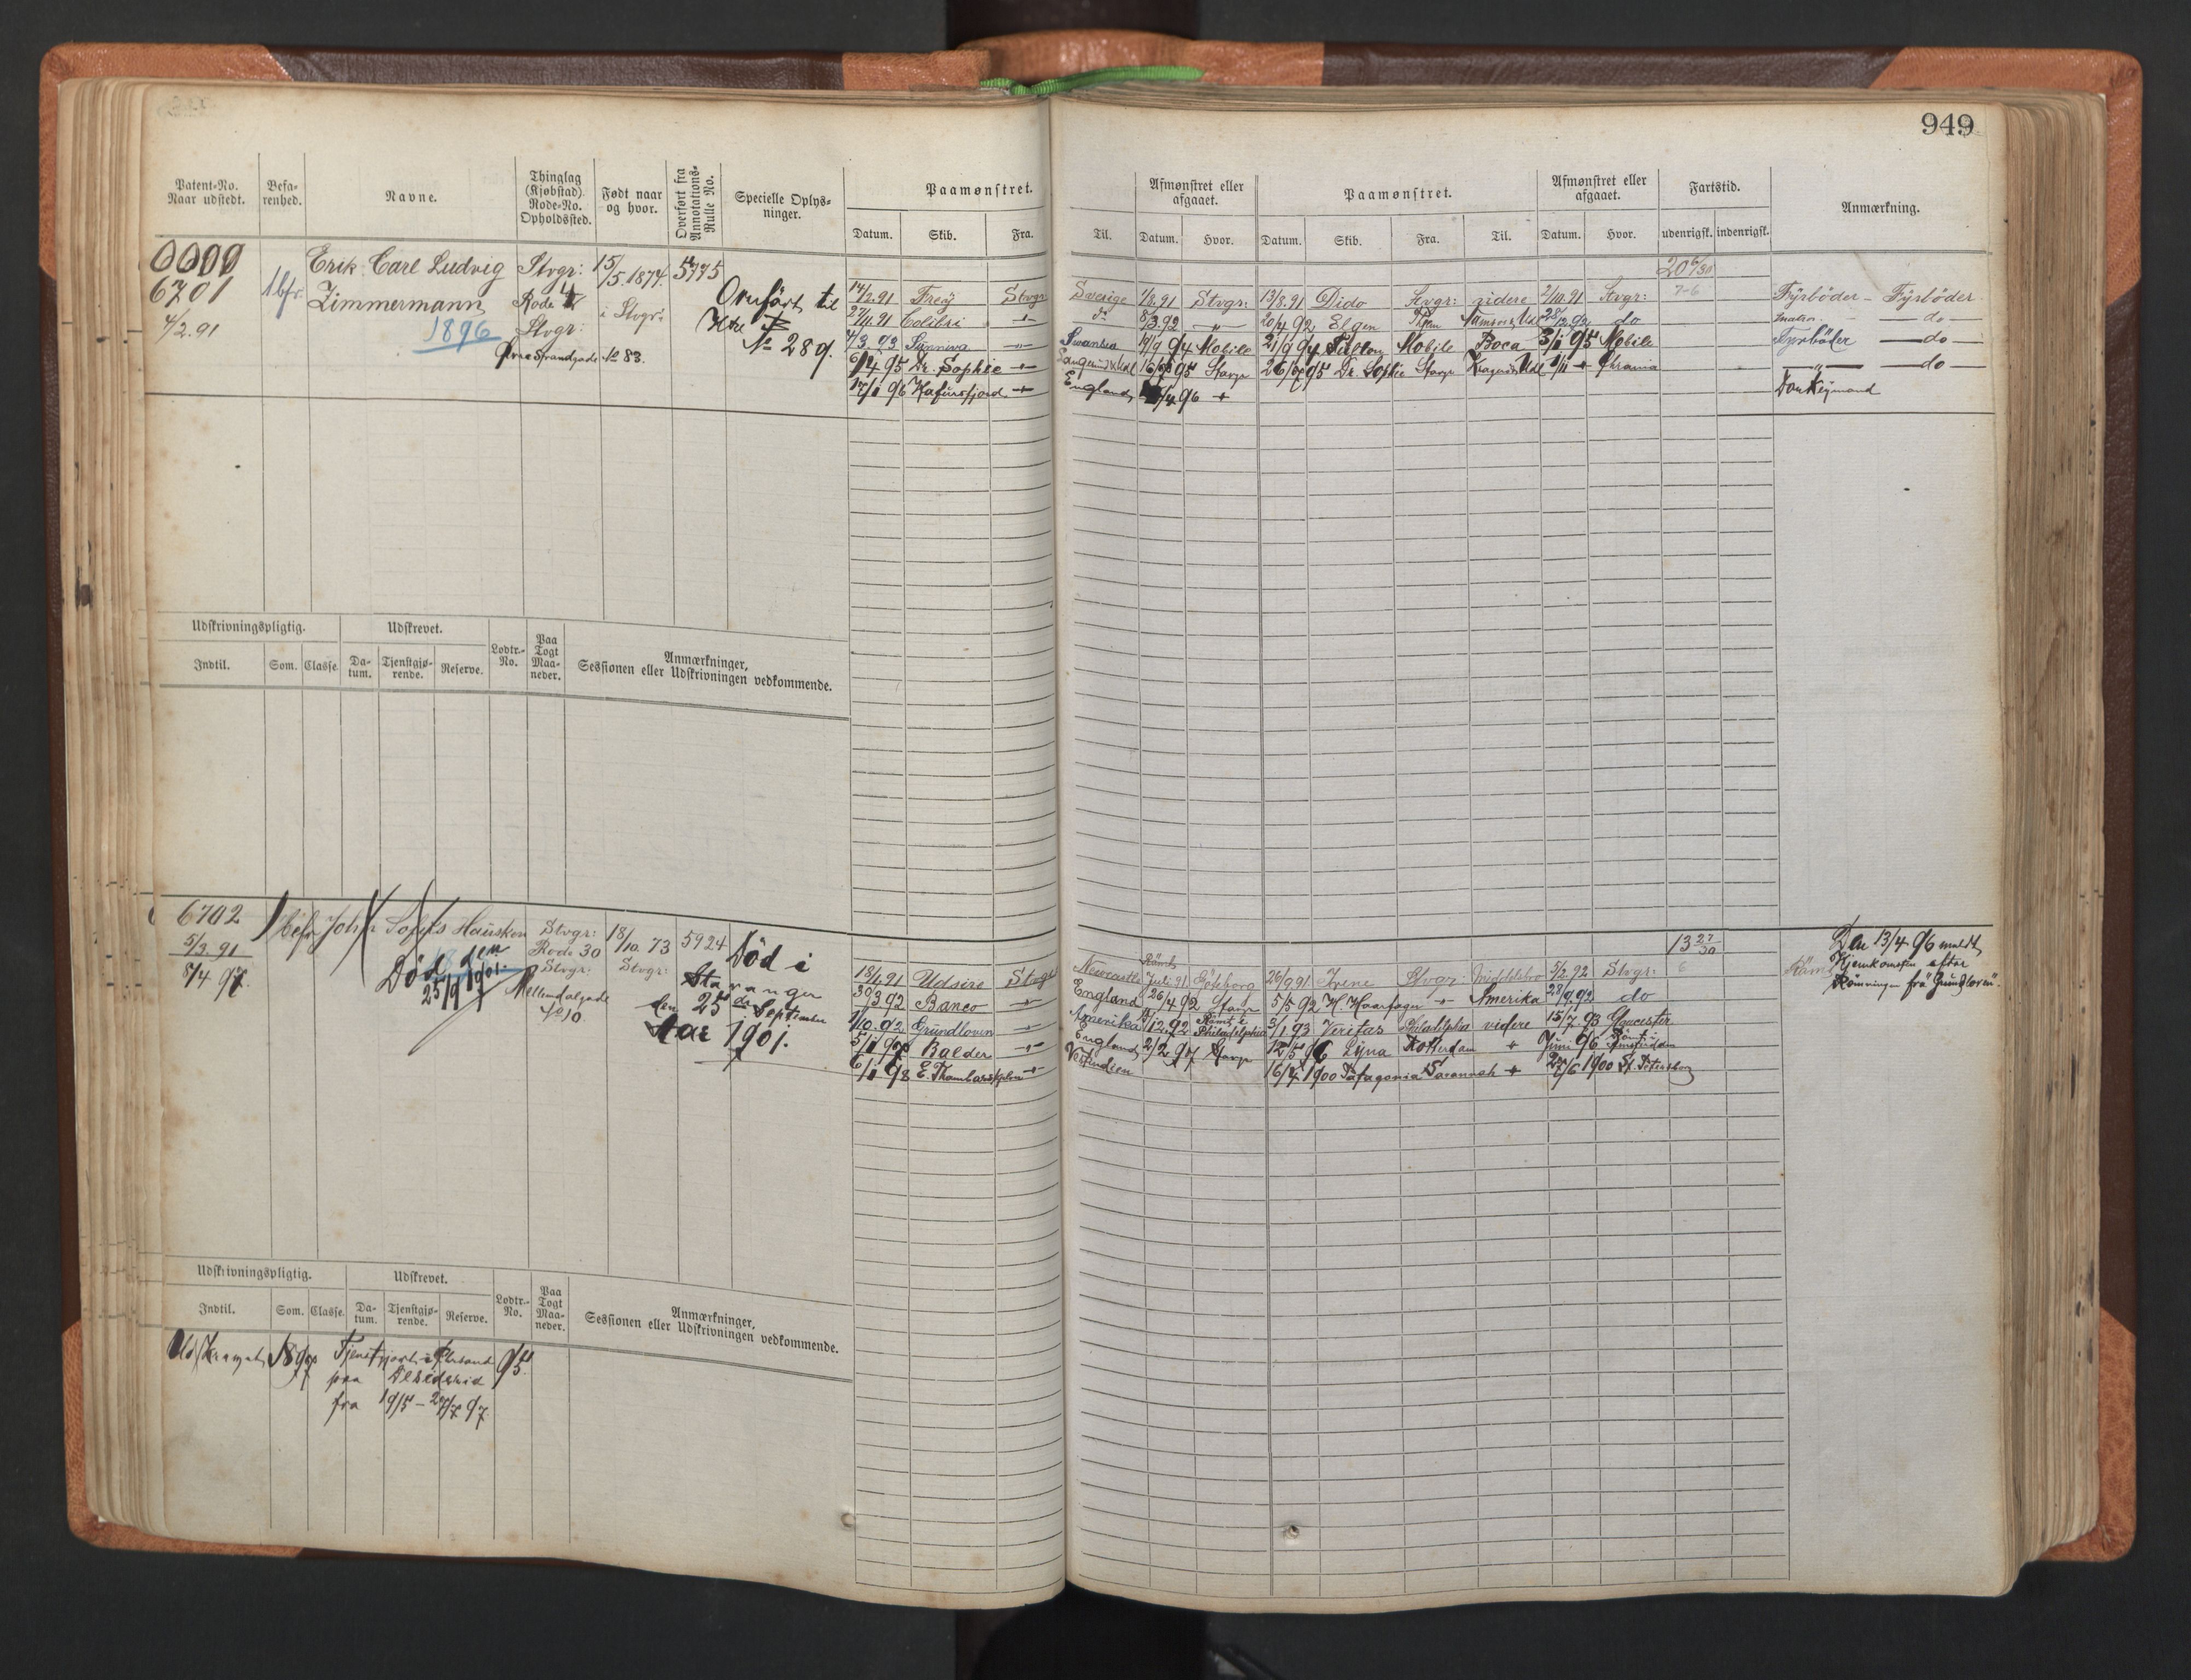 949
Patent-No. Naar udstedt.
Befarenhed.
Navne.
Thinglag (Kjøbstad) Rode-No. Opholdssted.
Født naar og hvor.
Overført fra Annotations-Rulle No.
Specielle Oplysninger.
Paamønstret.
Afmønstret eller afgaaet.
Paamønstret.
Afmønstret eller afgaaet.
Fartstid.
Anmærkning.
Datum. Skib. Fra. Til. Datum. Hvor. Datum. Skib. Fra. Til. Datum. Hvor. udenrigsk. indenrigsk.
0000 Erik Carl Ludvig Stvgr: 15/5.1874. 5775
6701 1bfr. Zimmermann Rode 4 i Stvgr: Overført til
4/2.91 1896 Stvgr: No 289.
Øvre Strandgade No 83.
20 6/30
14/2.91 Frey Stvgr Sverige 1/8.91 Stvgr: 13/8.91 Dido Stvgr: videre 2/10.91 Stvgr: 7-6 Fyrbøder - Fyrbøder
27/11.91 Colibri do 8/3.92 20/4 92 Elgen 28/12.92 do do
4/3.93 Sunniva Swansea 19/9 94 Mobile 21/9 94 Fulton Mobile Boca 3/1 95 Mobile Fyrbøder do
6/4 95 Dr. Sophie 16/7 95 Stavgr 26/7 95 Dr. Sophie Stavgr Chrania do
17/1 96 Hafursfjord England /4 96 Donkeymand
Udskrivningspligtig.
Udskrevet.
Lodtr.-No.
Paa Togt Maaneder.
Anmærkninger, Sessionen eller Udskrivningen vedkommende.
Indtil. Som. Classe. Datum. Tjenstgjørende. Reserve.
6702 1 befr John Sofus Hausken Stvgr: 18/10 73 5924 Død i
5/3.91 Rode 30 Stvgr: Stavanger
8/4 97. Død den 25/9 1901. Stvgr: den 25de September
Møllendalgade Aar 1901.
No 10.
13 27/30
Den 13/4 96 meldt
Hjemkomsten efter
Rømningen fra "Grundloven".
18/4 91 Udsire Stvgr Newcastle Rømt Juli 91 Göteborg 26/9 91 Irene Stvgr: Middlesbro 5/2.92 Stvgr: 6 Rømt
30/3 92 Banco England 26/4 92 Stavgr 5/5 92 H. Haarfager Amerika 28/9 92 do
1/10.92 Grundloven Amerika /12.92 Rømt i Philadelphia 3/1 93 Veritas Philadelphia videre 15/7 93 Gloucester
5/1 97 Balder England 2/2 97 Stavgr 12/5 96 Lyna Rotterdam Juni 96 Rømt i Amsterdam
6/1 98 E. Thambarskjelve Vestindien 16/4 1900 Patagonia Savannah 27/6 1900 St. Petersborg
Udskrivningspligtig.
Udskrevet.
Lodtr.-No.
Paa Togt Maaneder.
Anmærkninger, Sessionen eller Udskrivningen vedkommende.
Indtil. Som. Classe. Datum. Tjenstgjørende. Reserve.
95.
paa
fra 19/5 - 27/7 97.